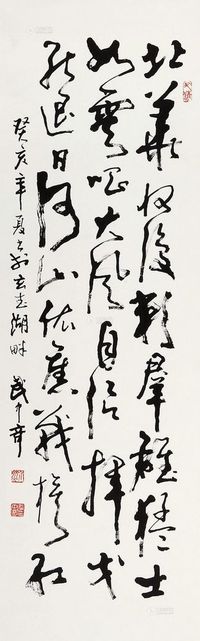 北華收復賴群雄猛士
如雲唱大風自信揮戈
能退日河山依舊戰旗紅
癸亥年夏於玄武湖畔 武中奇